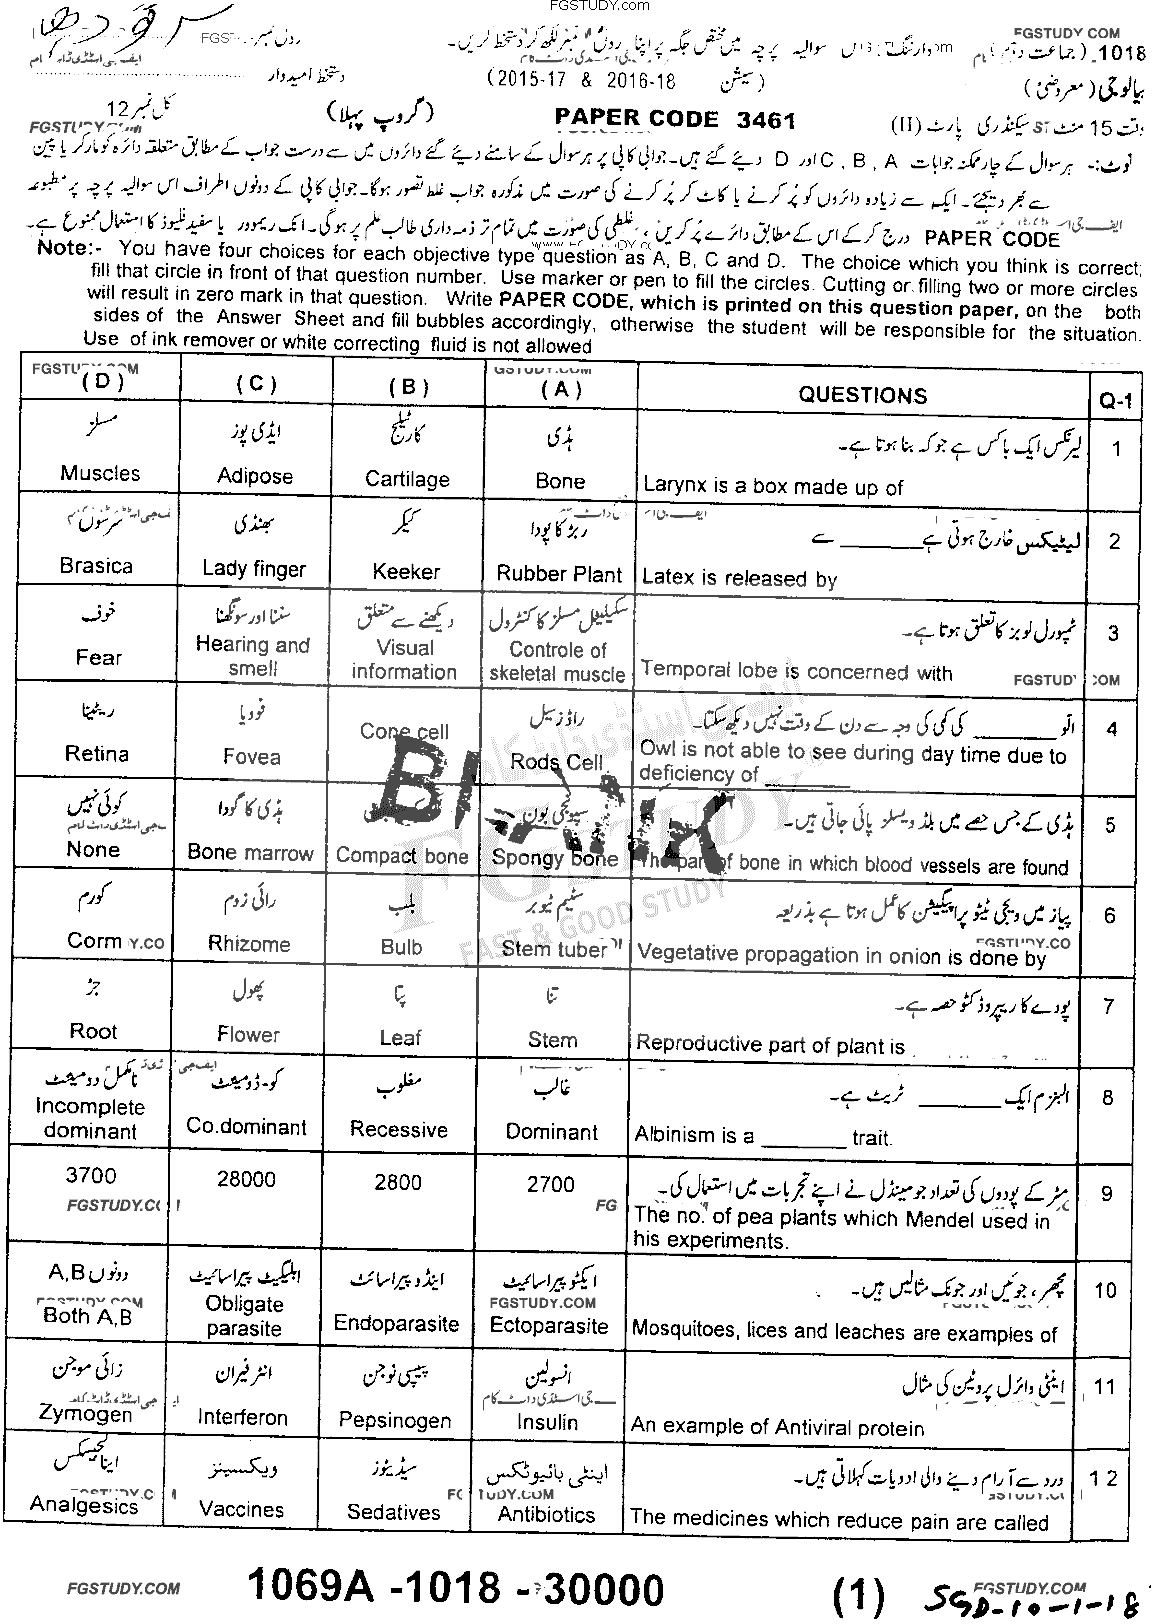 FGSTUDY.com
FGSTUDY COM
1018۔ (جماعت دہم)
بیالوجی (معروضی)
سیشن (2015-17 & 2016-18)
دستخط امیدوار
رول نمبر
وقت 15 منٹ
سیکنڈری پارٹ (II)
PAPER CODE 3461
(گروپ پہلا)
کل نمبر 12
نوٹ:- ہر سوال کے چار ممکنہ جوابات A ، B ، C اور D دیئے گئے ہیں۔ جوابی کاپی پر ہر سوال کے سامنے دیئے گئے دائروں میں سے درست جواب کے مطابق متعلقہ دائرہ کو مارکر یا پین
سے بھر دیجئے۔ ایک سے زیادہ دائروں کو پُر کرنے یا کاٹ کر پُر کرنے کی صورت میں مذکورہ جواب غلط تصور ہوگا۔ جوابی کاپی کے دونوں اطراف اس سوالیہ پرچہ پر مطبوعہ
PAPER CODE درج کرکے اس کے مطابق دائرے پُر کریں، غلطی کی صورت میں تمام تر ذمہ داری طالب علم پر ہوگی۔ انک ریموور یا سفید فلیوڈ کا استعمال ممنوع ہے۔
Note:- You have four choices for each objective type question as A, B, C and D. The choice which you think is correct;
fill that circle in front of that question number. Use marker or pen to fill the circles. Cutting or filling two or more circles
will result in zero mark in that question. Write PAPER CODE, which is printed on this question paper, on the both
sides of the Answer Sheet and fill bubbles accordingly, otherwise the student will be responsible for the situation.
Use of ink remover or white correcting fluid is not allowed
(D) (C) (B) (A) QUESTIONS Q-1
مسلز ایڈی پوز کارٹیلج ہڈی لیرنکس ایک باکس ہے جو کہ بنا ہوتا ہے۔ 1
Muscles Adipose Cartilage Bone Larynx is a box made up of
سرسوں بھنڈی کیکر ربڑ کا پودا لیٹیکس خارج ہوتی ہے ________ سے 2
Brasica Lady finger Keeker Rubber Plant Latex is released by
خوف سننا اور سونگھنا دیکھنے سے متعلق سکیلیٹل مسلز کا کنٹرول ٹمپورل لوبز کا تعلق ہوتا ہے۔ 3
Fear Hearing and smell Visual information Controle of skeletal muscle Temporal lobe is concerned with
ریٹینا فوویا راڈز سیل الّو ________ کی کمی کی وجہ سے دن کے وقت نہیں دیکھ سکتا۔ 4
Retina Fovea Cone cell Rods Cell Owl is not able to see during day time due to
deficiency of ________
BLANK
کوئی نہیں ہڈی کا گودا سپونجی بون ہڈی کے جس حصے میں بلڈ ویسلز پائی جاتی ہیں۔ 5
None Bone marrow Compact bone Spongy bone The part of bone in which blood vessels are found
FGSTUDY
FAST & GOOD STUDY
کورم رائی زوم بلب سٹیم ٹیوبر پیاز میں ویجی ٹیٹو پراپیگیشن کا عمل ہوتا ہے بذریعہ 6
Corm Rhizome Bulb Stem tuber Vegetative propagation in onion is done by
جڑ پھول پتا تنا پودے کا ریپروڈکٹو حصہ ہے۔ 7
Root Flower Leaf Stem Reproductive part of plant is
نامکمل ڈومیننٹ کو-ڈومیننٹ مغلوب غالب البنزم ایک ________ ٹریٹ ہے۔ 8
Incomplete dominant Co.dominant Recessive Dominant Albinism is a ________ trait.
3700 28000 2800 2700 مٹر کے پودوں کی تعداد جو مینڈل نے اپنے تجربات میں استعمال کی۔ 9
The no. of pea plants which Mendel used in
his experiments.
دونوں A,B ابلیگیٹ پیراسائیٹ اینڈو پیراسائٹ ایکٹو پیراسائیٹ مچھر، جوئیں اور جونک مثالیں ہیں۔ 10
Both A,B Obligate parasite Endoparasite Ectoparasite Mosquitoes, lices and leaches are examples of
زائی موجن انٹرفیران پیپسی نوجن انسولین اینٹی وائرل پروٹین کی مثال 11
Zymogen Interferon Pepsinogen Insulin An example of Antiviral protein
اینالجیسکس ویکسینز سیڈیٹوز اینٹی بائیوٹکس درد سے آرام دینے والی ادویات کہلاتی ہیں۔ 12
Analgesics Vaccines Sedatives Antibiotics The medicines which reduce pain are called
FGSTUDY.COM 1069A -1018 - 30000 (1) FGSTUDY.COM
SGD-10-1-18